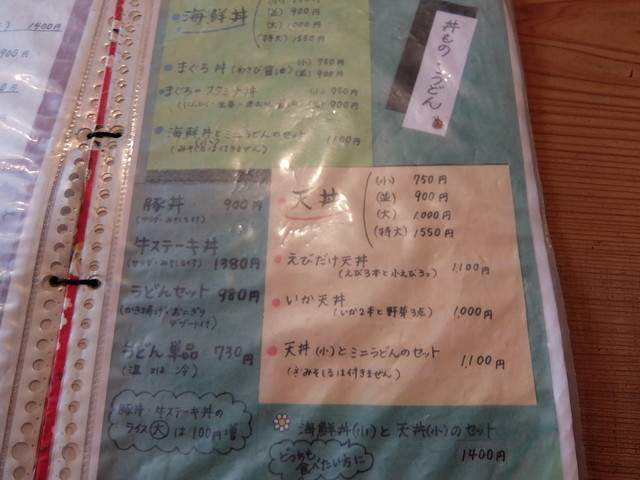 1400円
900円
丼もの・うどん
海鮮丼
(小) 750円
(並) 900円
(大) 1000円
(特大) 1550円
まぐろ丼(わさび醤油) (小) 750円
(並) 900円
まぐろのスタミナ丼 (小) 750円
(並) 900円
海鮮丼(小)とミニうどんのセット 1100円
(みそしるは付きません)
天丼
(小) 750円
(並) 900円
(大) 1.000円
(特大) 1550円
えびだけ天丼
(えび3本と小えび3コ) 1,100円
いか天丼
(いか2本と野菜3点) 1,000円
天丼(小)とミニうどんのセット
(※みそしるは付きません) 1,100円
豚丼 900円
(サラダ・みそしる付)
牛ステーキ丼
(サラダ・みそしる付) 1380円
うどんセット 980円
(かき揚げ・おにぎり
デザート付)
うどん単品 730円
(温 or 冷)
豚丼・牛ステーキ丼の
ライス大は100円増
海鮮丼(小)と天丼(小)のセット
どっちも
食べたい方に
1400円